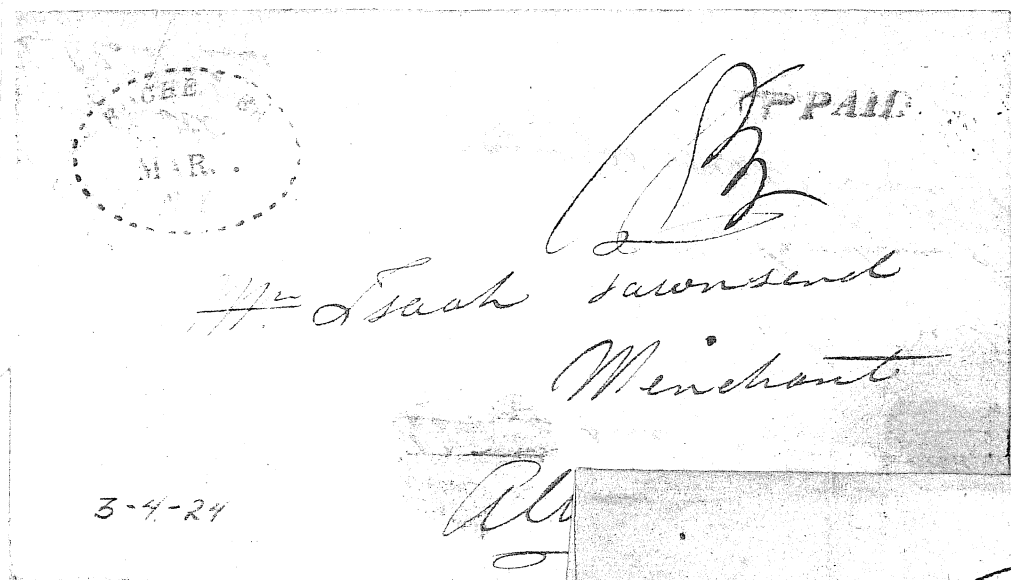 MAR.
PAID
Mr. Isaah Townsend
Merchant
3-4-24